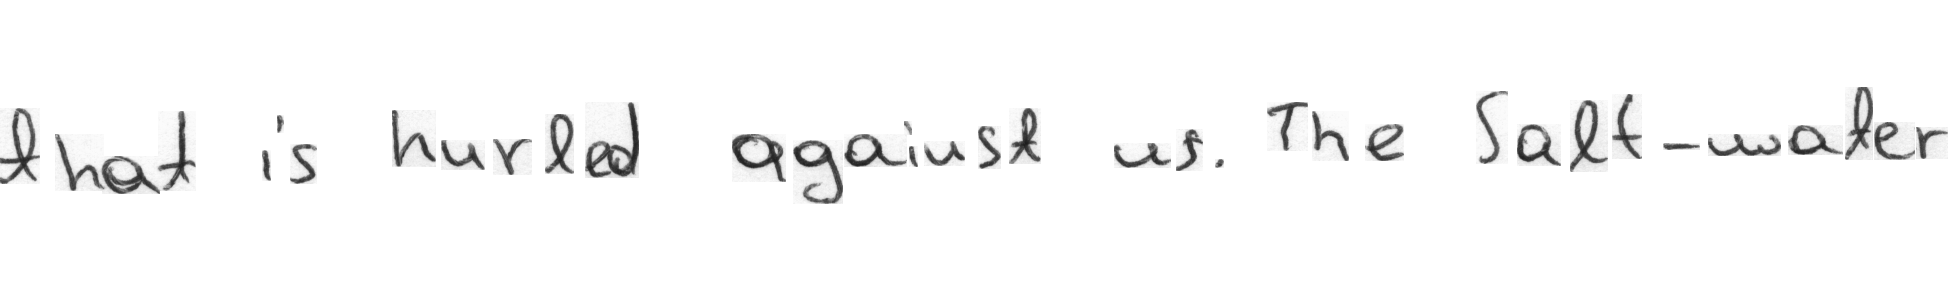 that is hurled against us. The Salt-water